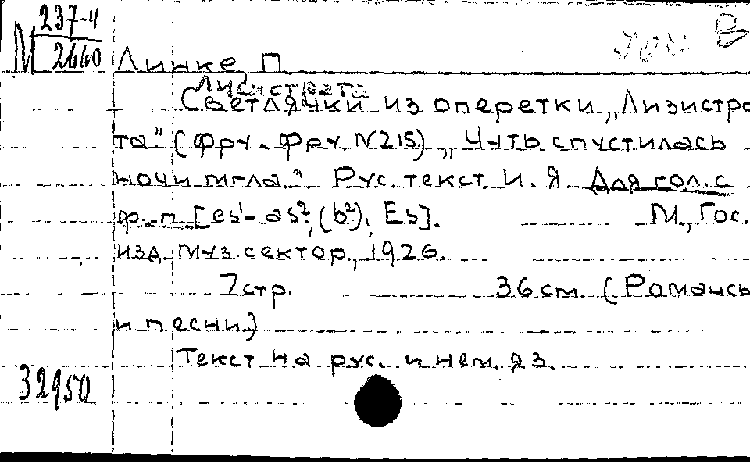 237-4
М 2660
Линке, П.
Лисистрата
Светлячки из оперетки „Лизистра
та" (Фру-Фру N 215) „Чуть спустилась
ночи мгла." Рус. текст И. Я. Для гол. с
ф.-п. [es¹-as², (b²), Es]. М., Гос.
изд. муз. сектор, 1926.
7 стр. 36 см. (Романсы
и песни)
Текст на рус. и нем. яз.
32950